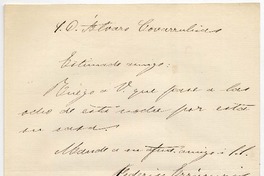 S. D. Alvaro Covarrubias
Estimado amigo:
Ruego a V. que pase a las
ocho de esta noche por esta
su casa.
Mande a su amigo i
Federico Errázuriz